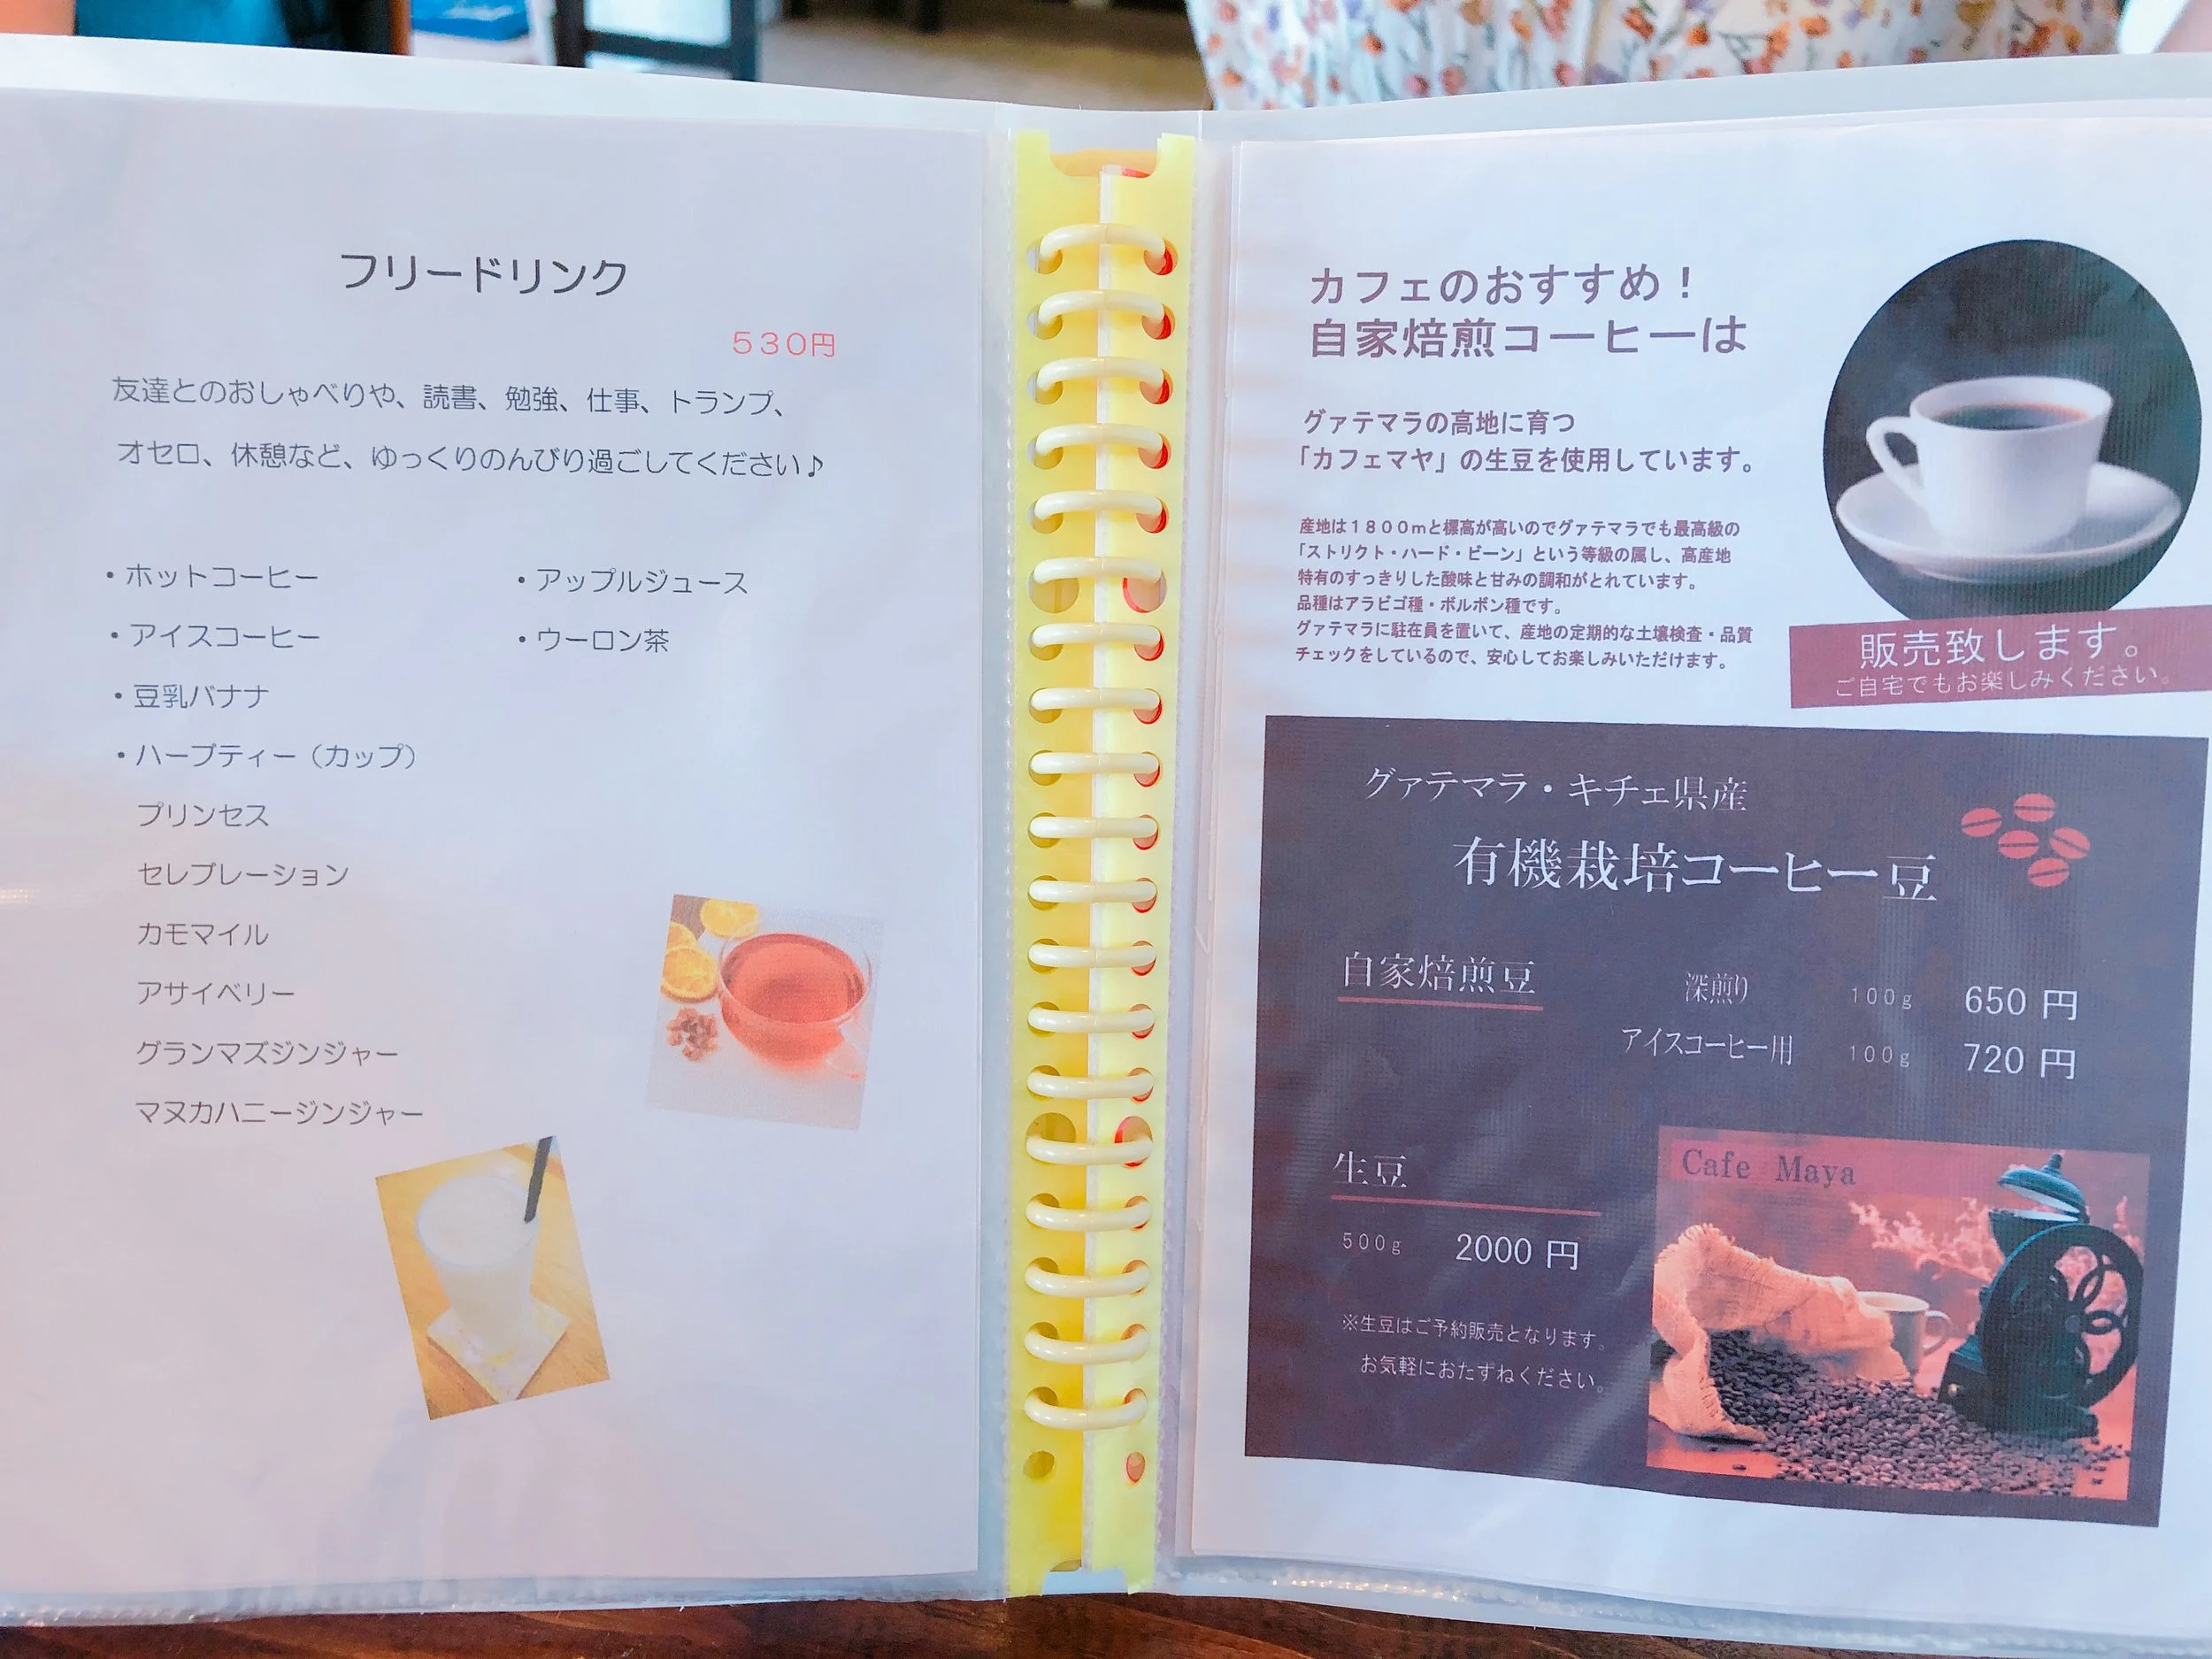 フリードリンク
５３０円
友達とのおしゃべりや、読書、勉強、仕事、トランプ、
オセロ、休憩など、ゆっくりのんびり過ごしてください♪
・ホットコーヒー
・アイスコーヒー
・豆乳バナナ
・ハーブティー（カップ）
プリンセス
セレブレーション
カモマイル
アサイベリー
グランマズジンジャー
マヌカハニージンジャー
・アップルジュース
・ウーロン茶
カフェのおすすめ！
自家焙煎コーヒーは
グァテマラの高地に育つ
「カフェマヤ」の生豆を使用しています。
産地は１８００ｍと標高が高いのでグァテマラでも最高級の
「ストリクト・ハード・ビーン」という等級の属し、高産地
特有のすっきりした酸味と甘みの調和がとれています。
品種はアラビゴ種・ボルボン種です。
グァテマラに駐在員を置いて、産地の定期的な土壌検査・品質
チェックをしているので、安心してお楽しみいただけます。
販売致します。
ご自宅でもお楽しみください。
グァテマラ・キチェ県産
有機栽培コーヒー豆
自家焙煎豆 深煎り 100g 650 円
アイスコーヒー用 100g 720 円
生豆
500g 2000 円
※生豆はご予約販売となります。
お気軽におたずねください。
Cafe Maya